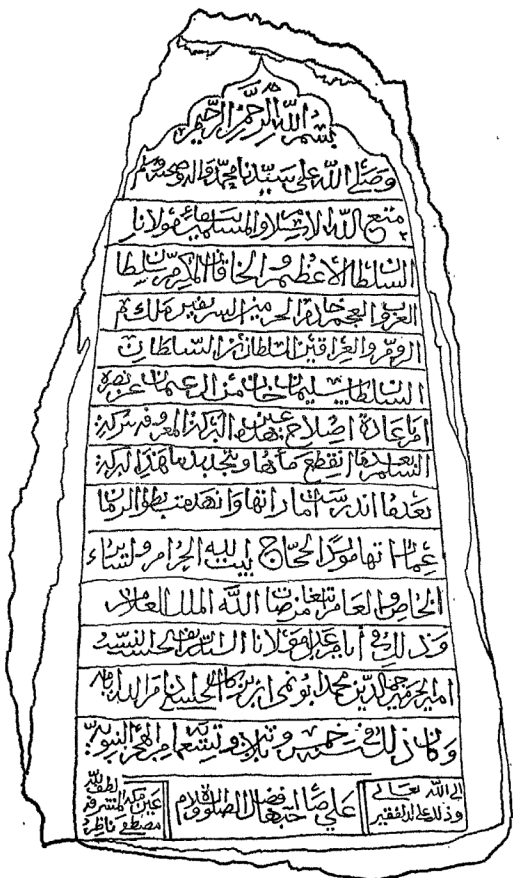 بسم الله الرحمن الرحيم
وصلى الله على سيدنا محمد واله وصحبه وسلم
متع الله الاسلام والمسلمين ببقاء مولانا
السلطان الاعظم والخاقان المكرم سلطان
العرب والعجم خادم الحرمين الشريفين ملك
الروم والعراقين السلطان بن السلطان
السلطان سليمان خان من ال عثمان عز نصره
امر باعادة اصلاح هذه عين البركة المعروفة ببركة
السلم بعد ما انقطع ماءها وتجديد هذه البركة
بعدما اندرست اماراتها وانهدمت بطول الزمان
عماراتها موردا لحجاج بيت الله الحرام ولسائر
الخاص والعام تبلغا مرضات الله الملك العلام
وذلك في ايام مولانا السيد الشريف الحسيب النسيب
امير الحرمين جمال الدين محمد ابو نمي ابن بركات الحسني ادام الله ايامه
وكان ذلك في سنة خمس وثلاثين وتسعمائة من الهجرة النبوية
على صاحبها افضل الصلوة والسلام
وذلك على يد الفقير
الى الله تعالى
لطف الله
عين مكة المشرفة
مصطفى ناظر